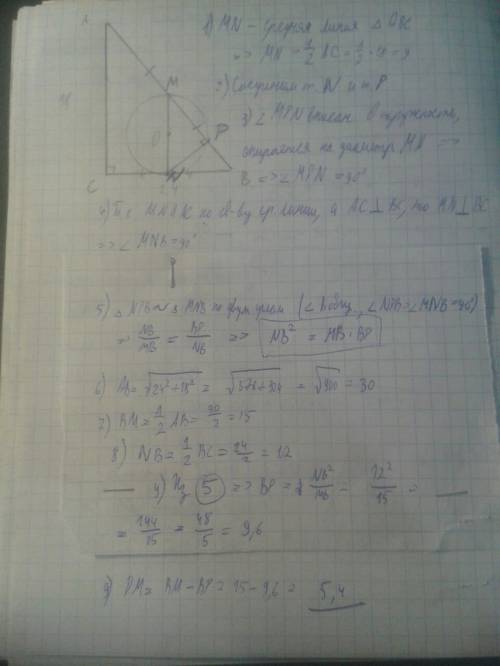 A
1) MN – средняя линия △ ABC
=> MN = 1/2 AC = 1/2 · 18 = 9
2) Соединим т. N и т. P
M
3) ∠MPN вписан в окружность,
O
P
18
опирается на диаметр MN =>
=> ∠MPN = 90°
C
N
24
B
4) Т.к. MN ∥ AC по св-ву ср. линии, а AC ⊥ BC, то MN ⊥ BC
=> ∠ MNB = 90°
5) △ NPB ~ △ MNB по двум углам (∠ B общ., ∠NPB = ∠MNB = 90°)
=> NB/MB = BP/NB => NB² = MB · BP
6) AB = √24² + 18² = √576 + 324 = √900 = 30
7) BM = 1/2 AB = 30/2 = 15
8) NB = 1/2 BC = 24/2 = 12
9) Из 5 => BP = NB²/MB = 12²/15 =
= 144/15 = 48/5 = 9,6
9) PM = BM – BP = 15 – 9,6 = 5,4